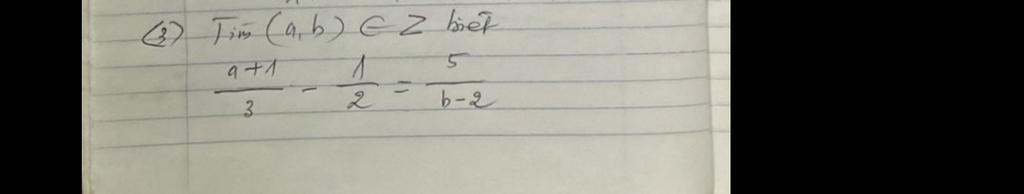 (3) Tìm (a,b) ∈ Z biết
(a+1)/3 - 1/2 = 5/(b-2)